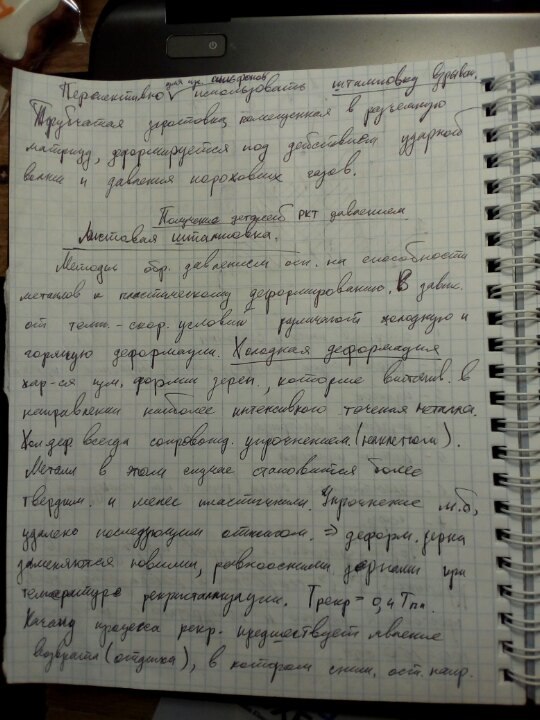 для пр. сильфонов
Перспективно использовать штамповку взрывом.
Трубчатая заготовка, помещенная в разъемную
матрицу, деформируется под действием ударной
волны и давления пороховых газов.
Получение деталей РКТ давлением
Листовая штамповка.
Методы обр. давлением осн. на способности
металлов к пластическому деформированию. В завис.
от темп.-скор. условий различают холодную и
горячую деформации. Холодная деформация
хар-ся изм. формы зерен, которые вытягив. в
направлении наиболее интенсивного течения металла.
Хол деф всегда сопровожд. упрочнением (наклепом).
Металл в этом случае становится более
твердым и менее пластичным. Упрочнение м.б.
удалено последующим отжигом. => деформ. зерна
заменяются новыми, равноосными зернами при
температуре рекристаллизации. Трекр = 0,4 Тпл.
Началу процесса рекр. предшествует явление
возврата (отдыха), в котором сним. ост. напр.